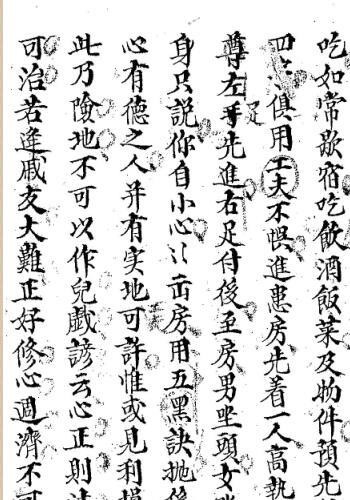 吃如常歇宿吃飲酒飯菜及物件預先
四〻俱用工夫不悞進患房先着一人高執
尊左手足先進右足付後至房男坐頭女
身只説你自小心〻出房用五黑訣抛
心有德之人并有実地可許惟或見利
此乃險地不可以作兒戯諺云心正則
可治若逢戚友大難正好修心週濟不可